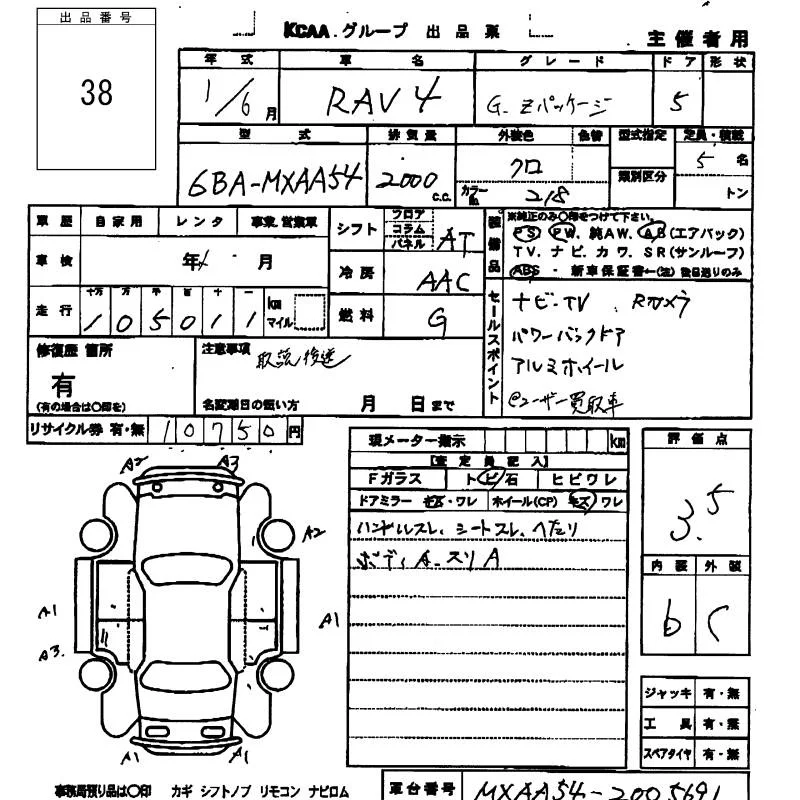 出品番号
38
KCAA.グループ 出品票
主催者用
年式 車名 グレード ドア 形状
1/6月 RAV4 G. Zパッケージ 5
型式 排気量 外装色 色替 型式指定 定員・積載
6BA-MXAA54 2000 c.c. クロ 5名
カラーNo. 218 類別区分 トン
車歴 自家用 レンタ 事業.営業車
車検 年 月
走行 十万 万 千 百 十 一
105011 km マイル
シフト フロア コラム パネル AT
冷房 AAC
燃料 G
装備品 ※純正のみ○印をつけて下さい。
PS. PW. 純AW. AB(エアバック)
TV. ナビ. カワ. SR(サンルーフ)
ABS - 新車保証書←(注)後日送りのみ
セールスポイント
ナビ・TV Rカメラ
パワーバックドア
アルミホイール
@ユーザー買取車
修復歴 箇所
有
(有の場合は○印を)
注意事項
取説後送
名変期日の伝い方 月 日まで
リサイクル券 有・無 10750円
現メーター指示 km
【査定員記入】
Fガラス トビ石 ヒビワレ
ドアミラー キズ・ワレ ホイール(CP) キズ ワレ
ハンドルスレ、シートスレ、ヘタリ
ボディA.スリA
評価点
3.5
内装 外装
b C
ジャッキ 有・無
工具 有・無
スペアタイヤ 有・無
A2 A3
A2
A1 A1
A3.
A1 A1
事務局預り品は○印 カギ シフトノブ リモコン ナビロム
車台番号 MXAA54-2005691